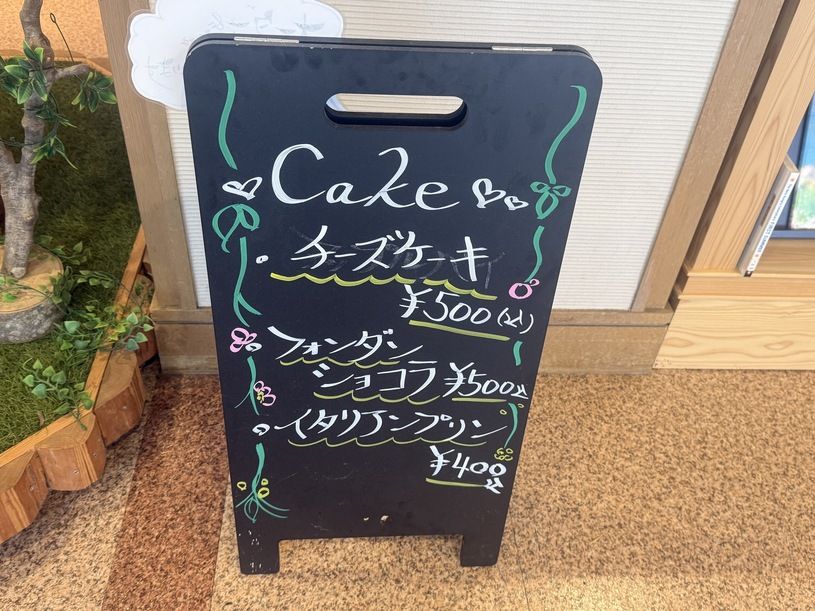 Cake
・チーズケーキ
¥500(込)
・フォンダン
ショコラ ¥500込
・イタリアンプリン
¥400込